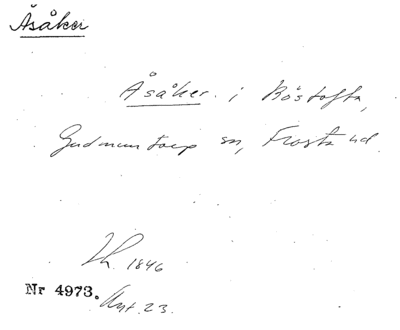 Åsåker
Åsåker i Böstofta,
Gudmuntorp sn, Frosta hd.
Lh. 1846
Nr 4973. Ant. 23.